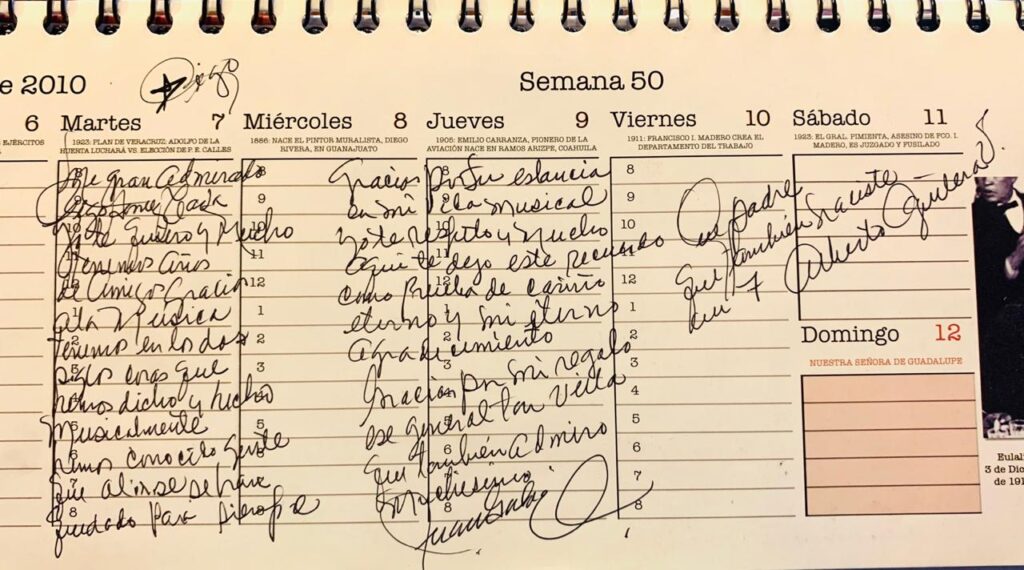 e 2010
Diego
Semana 50
6
EJÉRCITOS
Martes 7
1923: PLAN DE VERACRUZ: ADOLFO DE LA
HUERTA LUCHARÁ VS. ELECCIÓN DE P. E. CALLES
Me gran Admirado
Diego
yo te quiero y Mucho
tenemos años
de Amigos Gracias
a la Musica
tenemos en los dos
siglos cosas que
hemos dicho y hecho
Musicalmente
hemos conocido gente
que
quedado Para siempre
Miércoles 8
1886: NACE EL PINTOR MURALISTA, DIEGO
RIVERA, EN GUANAJUATO
8
9
10
11
12
1
2
3
4
5
6
7
8
Jueves 9
1905: EMILIO CARRANZA, PIONERO DE LA
AVIACIÓN NACE EN RAMOS ARIZPE, COAHUILA
Gracias Por su estancia
en mi vida Musical
yo te respeto y Mucho
aqui te dejo este recuerdo
como Prueba de cariño
eterno y mi eterno
agradecimiento
Gracias por mi regalo
ese general Pan Villa
que también Admiro
Muchisimo
Juan Gabriel
Viernes 10
1911: FRANCISCO I. MADERO CREA EL
DEPARTAMENTO DEL TRABAJO
8
9
10
11
12
1
2
3
4
5
6
7
8
padre
que también
Alberto Aguilera
Sábado 11
1923: EL GRAL. PIMIENTA, ASESINO DE FCO. I.
MADERO, ES JUZGADO Y FUSILADO
Domingo 12
NUESTRA SEÑORA DE GUADALUPE
Eulali
3 de Dic
de 191